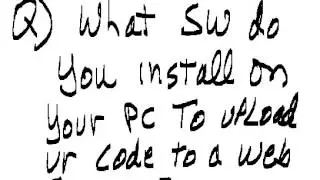 Q) What SW do
you install on
your PC To upLoad
ur code to a web